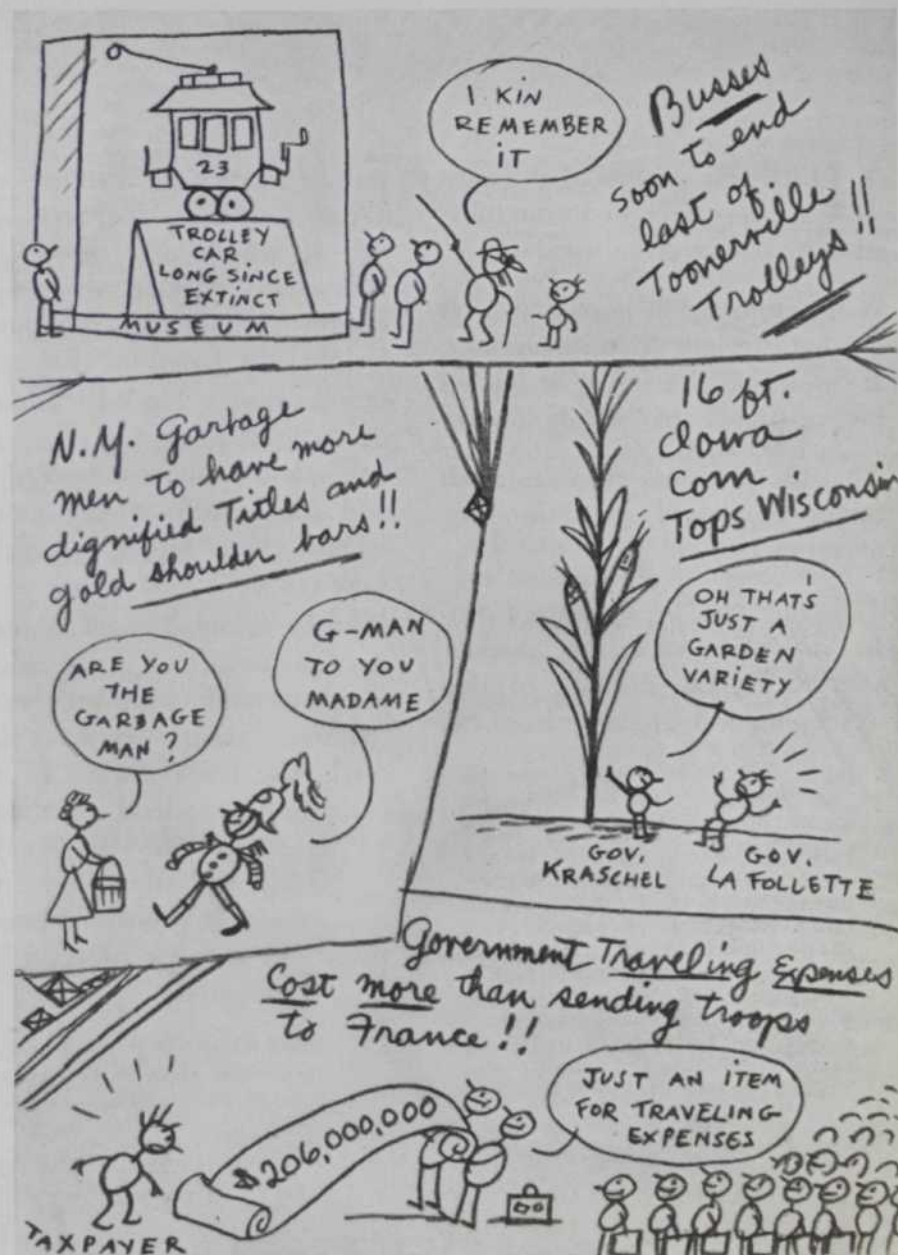 23
TROLLEY
CAR
LONG SINCE
EXTINCT
MUSEUM
I KIN
REMEMBER
IT
Busses
soon to end
last of
Toonerville
Trolleys!!
N.Y. Garbage
men to have more
dignified Titles and
gold shoulder bars!!
ARE YOU
THE
GARBAGE
MAN?
G-MAN
TO YOU
MADAME
16 ft.
Iowa
Corn
Tops Wisconsin
OH THAT'S
JUST A
GARDEN
VARIETY
GOV.
KRASCHEL
GOV.
LA FOLLETTE
Government Traveling Expenses
Cost more than sending troops
to France!!
$206,000,000
JUST AN ITEM
FOR TRAVELING
EXPENSES
TAXPAYER